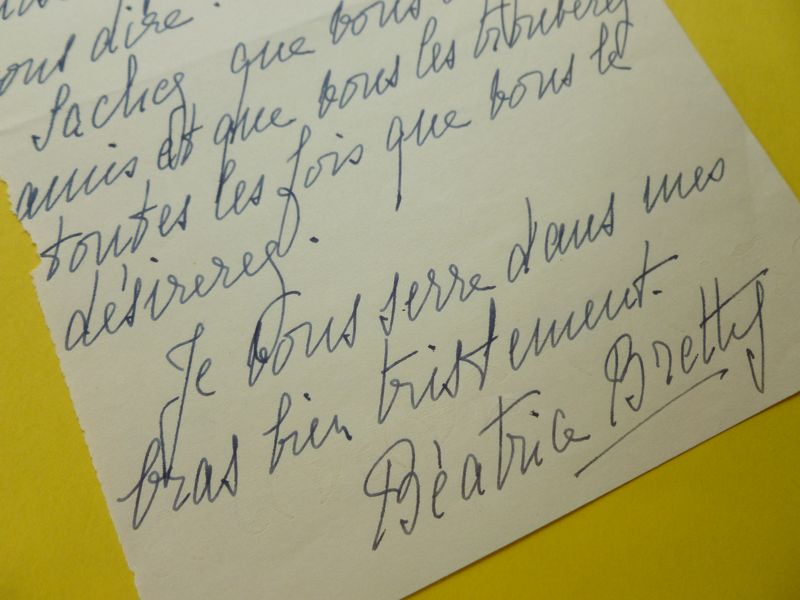 ous dire.
Sachez que vous
amis et que vous les trouverez
toutes les fois que vous le
désirerez.
Je vous serre dans mes
bras bien tristement.
Béatrice Bretty